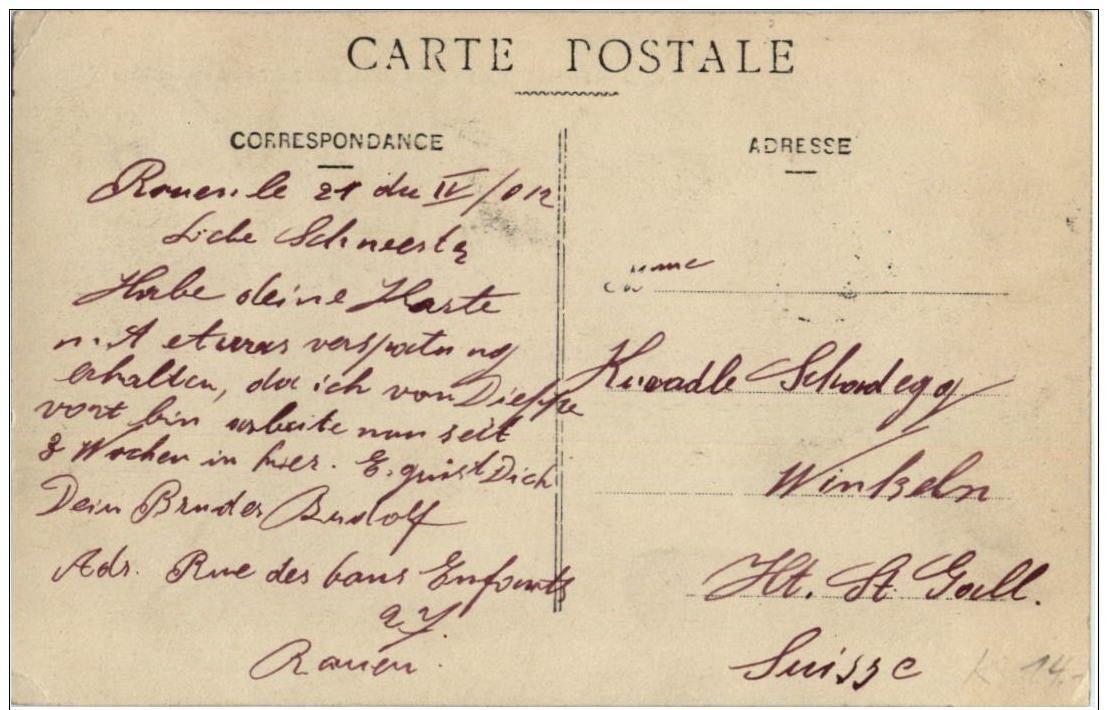 CARTE POSTALE
CORRESPONDANCE
Rouen le 21 du IV/012
Liebe Schwester
Habe deine Karte
n. A etwas verspatung
erhalten, da ich von Dieppe
vort bin arbeite nun seit
3 Wochen in hier. E. grüst Dich
Dein Bruder Rudolf
Adr. Rue des bons Enfants
27
Rouen.
ADRESSE
M
Schadegg
Winkeln
Kt. St. Gall.
Suisse
K 14.-